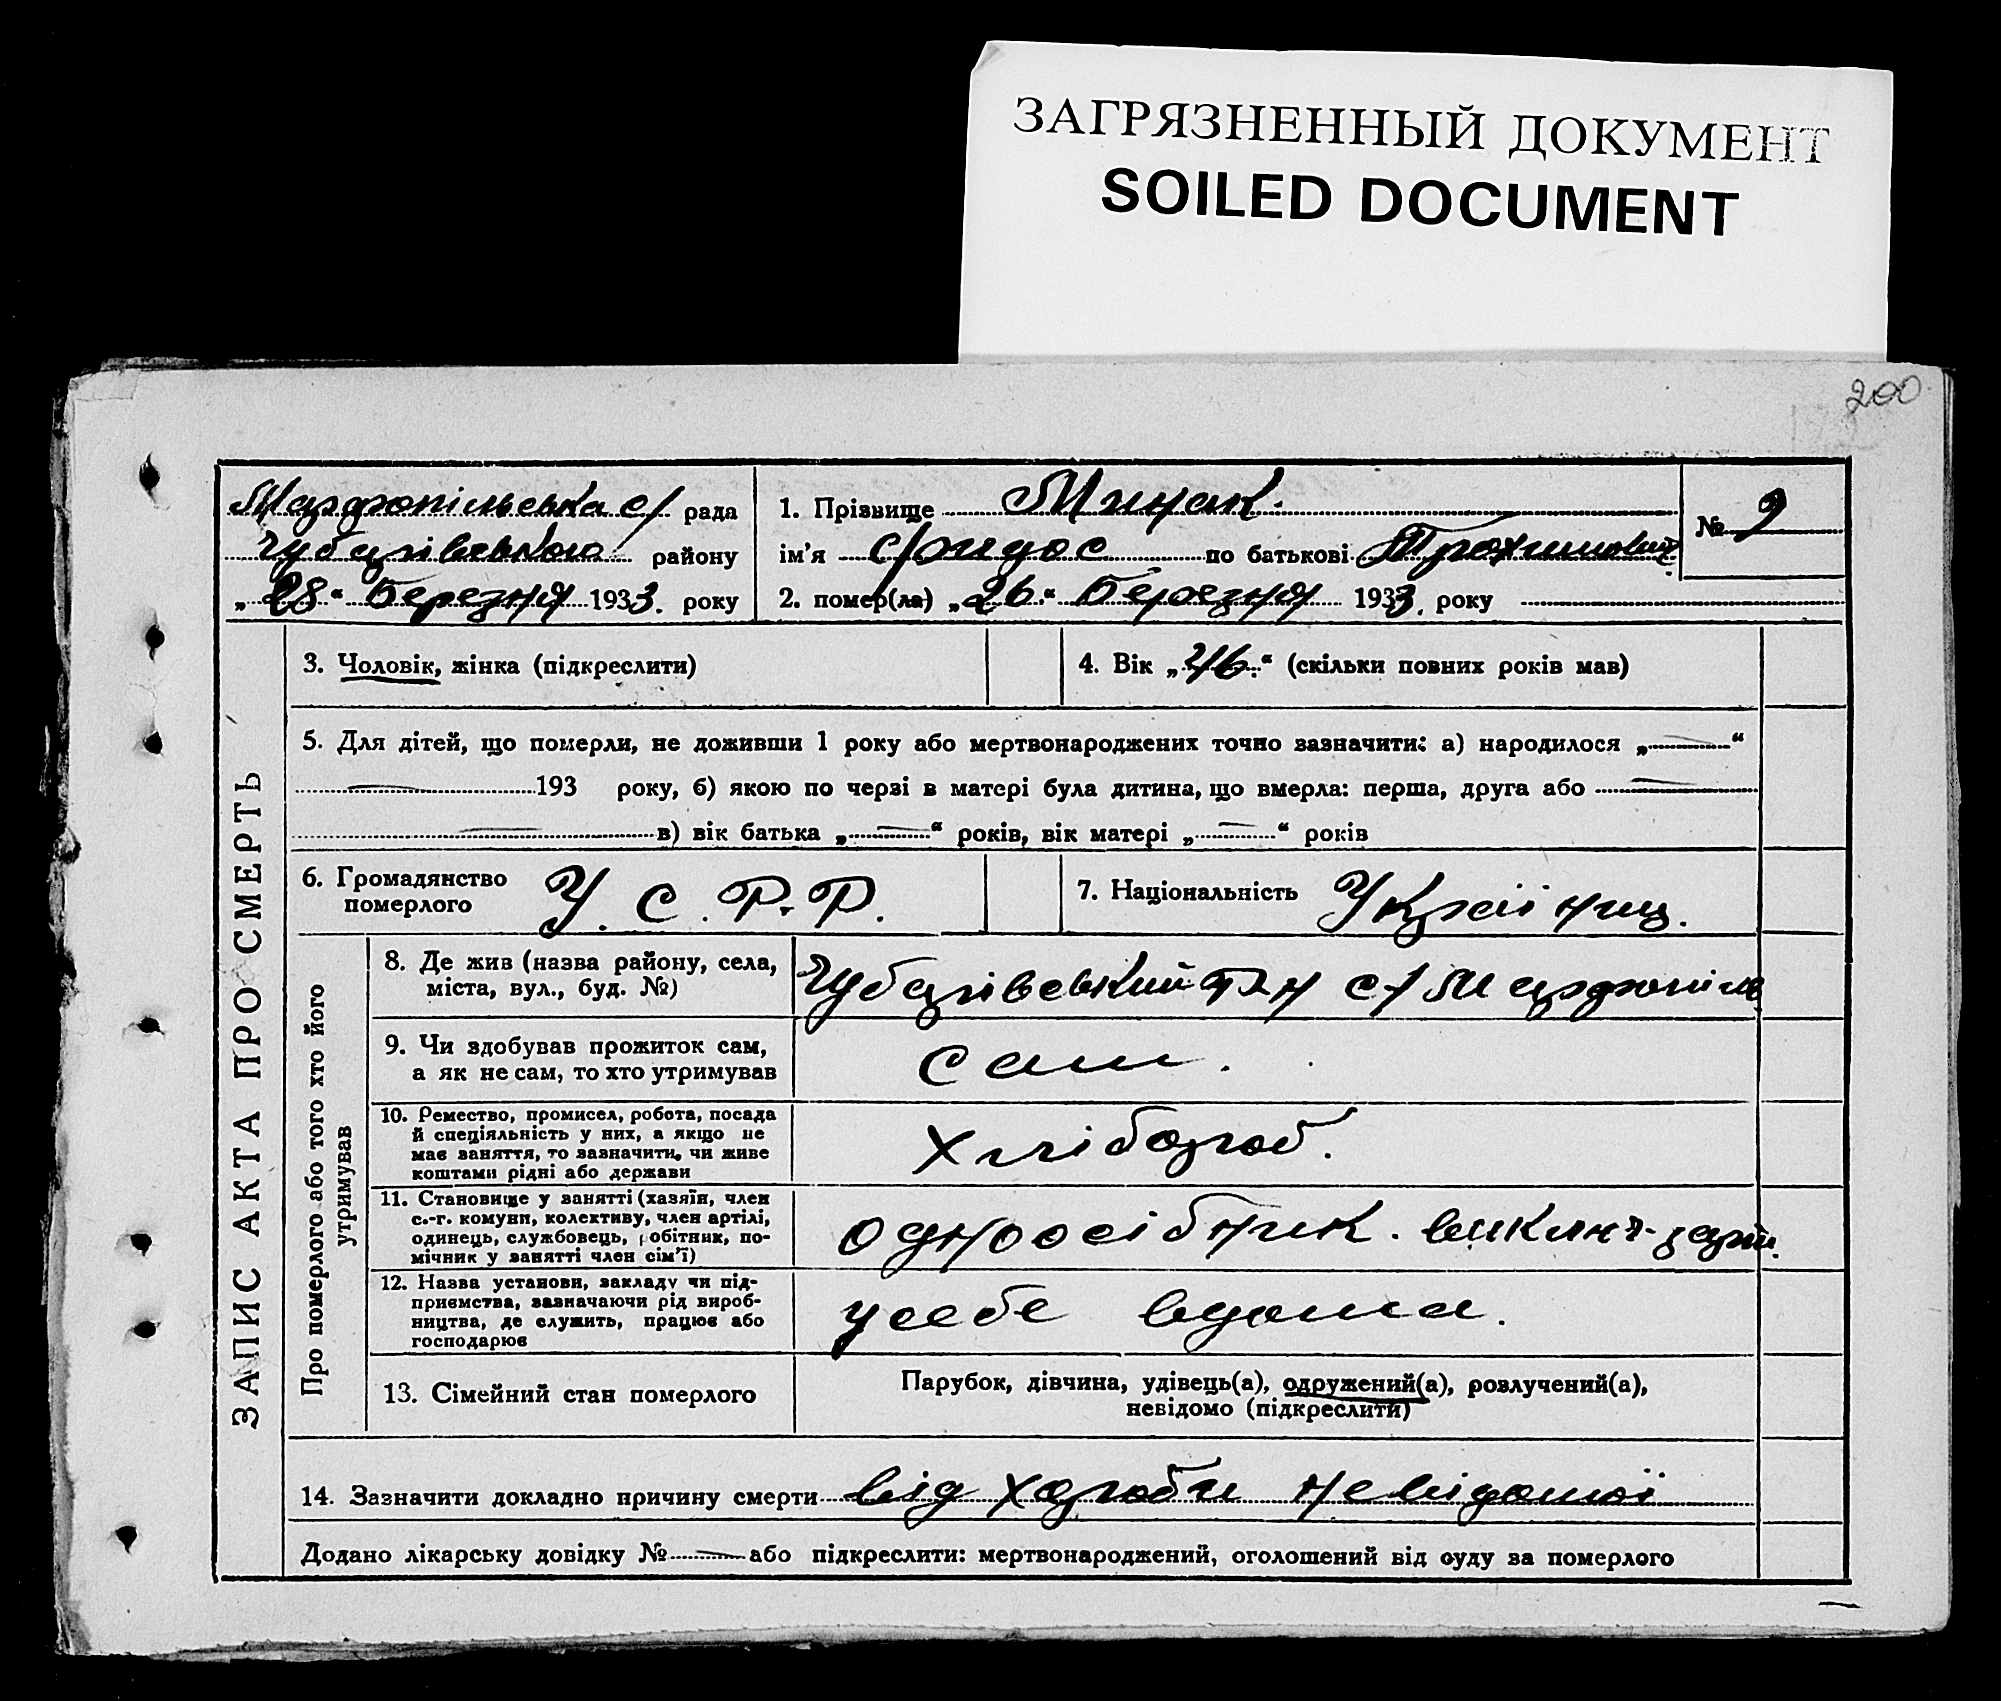 ЗАГРЯЗНЕННЫЙ ДОКУМЕНТ
SOILED DOCUMENT
200
Марфопільська с/ рада
Чубарівського району
„28“ Березня 1933. року
1. Прізвище Минак.
ім’я Федос по батькові Трохимович
2. помер(ла) „26“ Березня 1933. року
№ 9
ЗАПИС АКТА ПРО СМЕРТЬ
3. Чоловік, жінка (підкреслити)
4. Вік „46“ (скільки повних років мав)
5. Для дітей, що померли, не доживши 1 року або мертвонароджених точно зазначити: а) народилося „—“
— 193 року, б) якою по черзі в матері була дитина, що вмерла: перша, друга або —
— в) вік батька „—“ років, вік матері „—“ років
6. Громадянство
померлого
У. С. Р. Р.
7. Національність Україниц.
Про померлого або того хто його
утримував
8. Де жив (назва району, села,
міста, вул., буд. №)
Чубарівський р-н с/ Марфопіль
9. Чи здобував прожиток сам,
а як не сам, то хто утримував
сам.
10. Ремество, промисел, робота, посада
й спеціяльність у них, а якщо не
має заняття, то зазначити, чи живе
коштами рідні або держави
Хлібороб.
11. Становище у занятті (хазяїн, член
с.-г. комуни, колективу, член артілі,
одинець, службовець, робітник, по-
мічник у занятті член сім’ї)
одноосібник.
12. Назва установи, закладу чи під-
приємства, зазначаючи рід вироб-
ництва, де служить, працює або
господарює
усебе вдома.
13. Сімейний стан померлого
Парубок, дівчина, удівець(а), одружений(а), розлучений(а),
невідомо (підкреслити)
14. Зазначити докладно причину смерти від хороби невідомої
Додано лікарську довідку № — або підкреслити: мертвонароджений, оголошений від суду за померлого